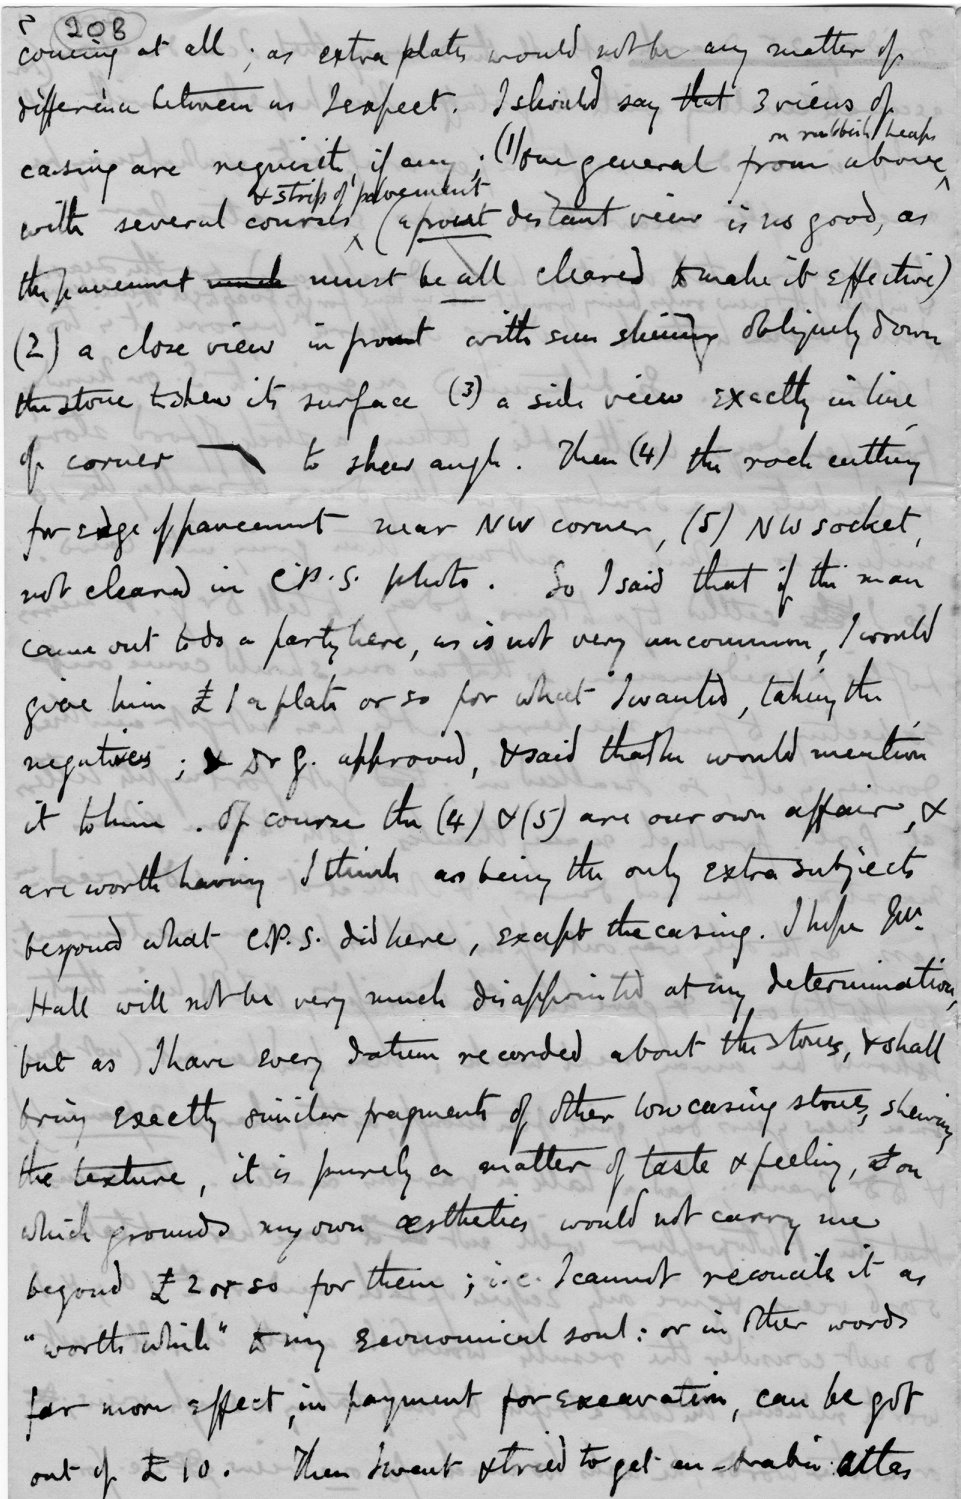 208
coming at all ; as extra plates would not be any matter of
difference between us I expect. I should say that 3 views of
on rubbish heaps
casing are requisite, if any ; (1) one general from above,
& strip of pavement
with several courses (a front distant view is no good, as
the pavement must be all cleared to make it effective)
(2) a close view in front with sun shining obliquely down
the stone to shew its surface (3) a side view exactly in line
of corner to shew angle. Then (4) the rock cutting
for edge of pavement near NW corner, (5) NW socket,
not cleared in C.P.S. photo. So I said that if the man
came out to do a party here, as is not very uncommon, I would
give him £1 a plate or so for what I wanted, taking the
negatives ; & Dr G. approved, & said that he would mention
it to him. Of course the (4) & (5) are our own affair, &
are worth having I think as being the only extra subjects
beyond what C.P.S. did here, except the casing. I hope
Hall will not be very much disappointed at my determination,
but as I have every datum recorded about the stones, & shall
bring exactly similar fragments of other low casing stones, shewing
the texture, it is purely a matter of taste & feeling, & on
which grounds my own æsthetics would not carry me
beyond £2 or so for them ; i.e. I cannot reconcile it as
"worth while" to my economical soul : or in other words
far more effect, in payment for excavation, can be got
out of £10. Then I went & tried to get an Arabic atlas